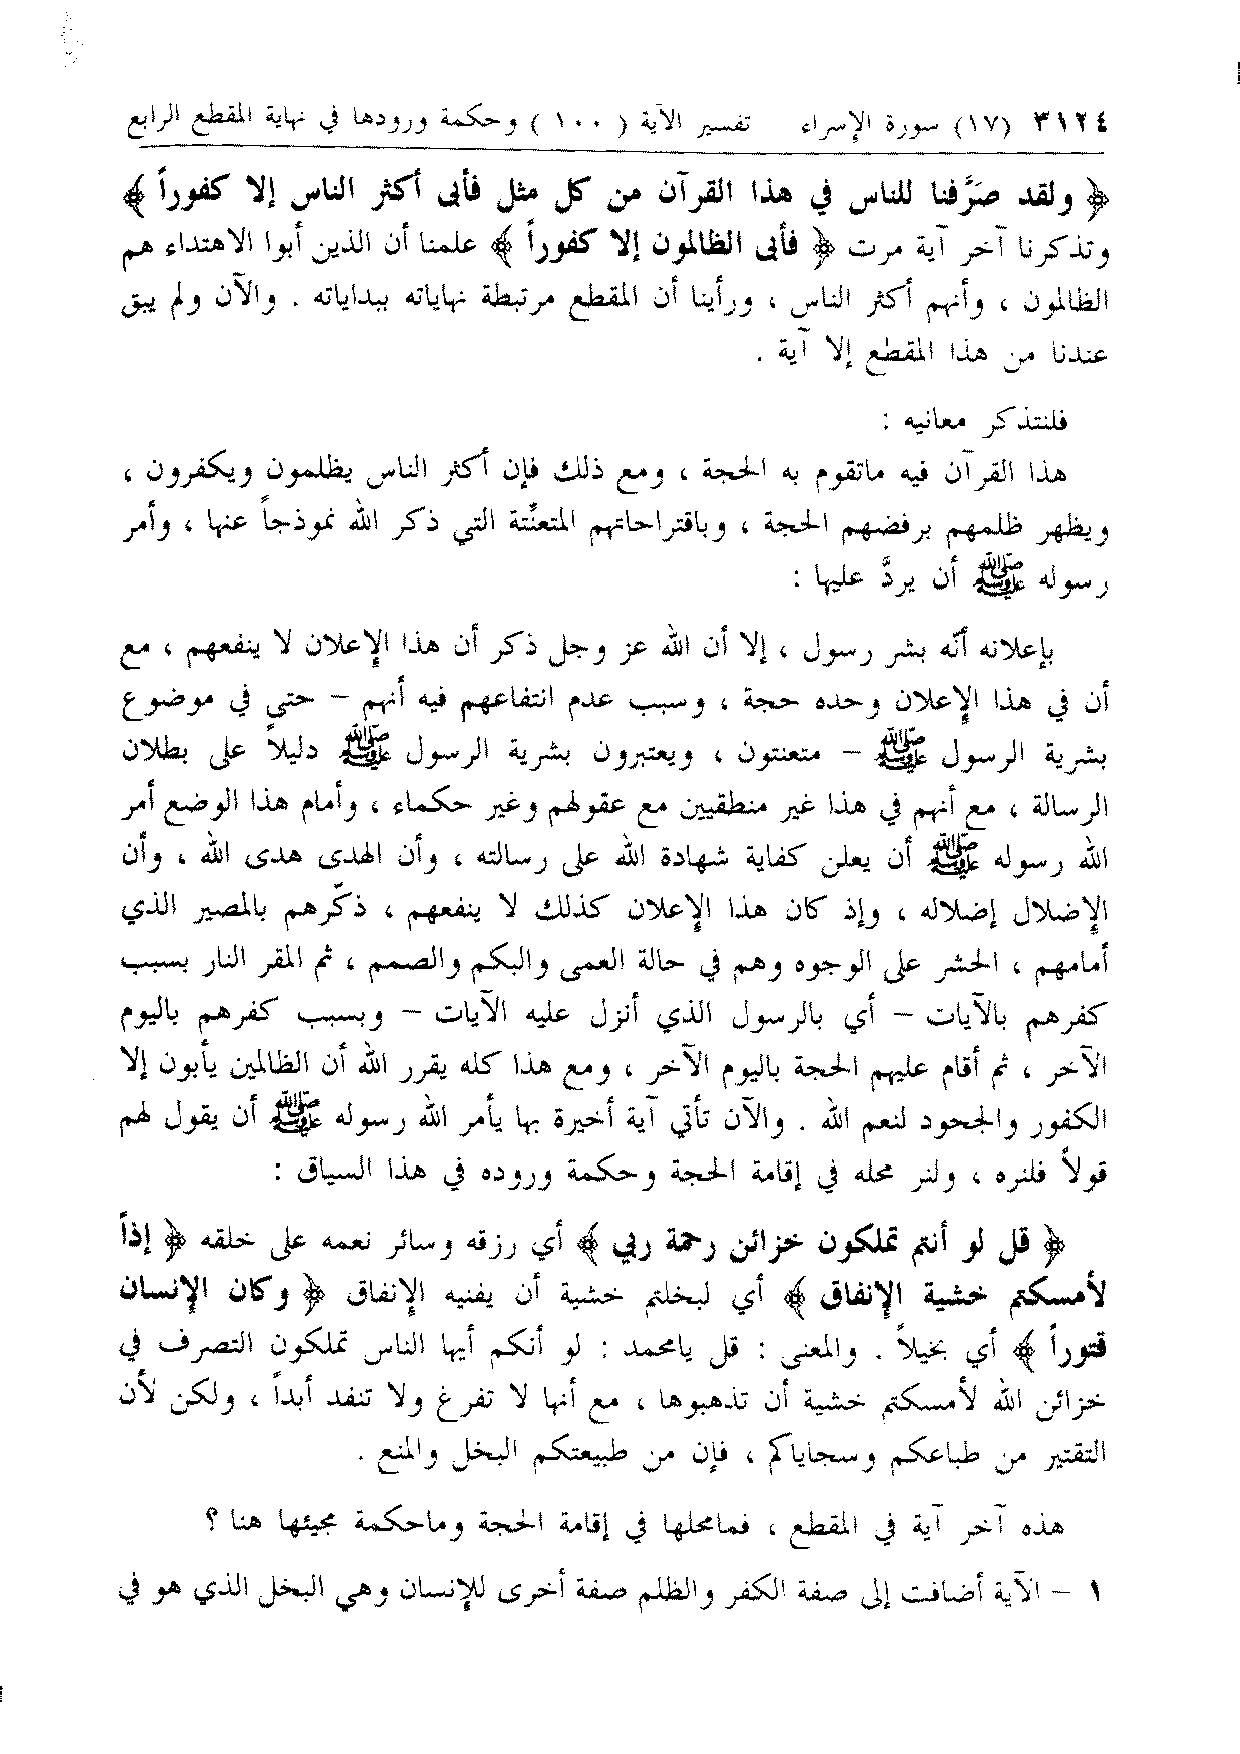 ٣١٢٤ (١٧) سورة الإسراء تفسير الآية ( ١٠٠ ) وحكمة ورودها في نهاية المقطع الرابع
﴿ ولقد صَرَّفنا للناس في هذا القرآن من كل مثل فأبى أكثر الناس إلا كفوراً ﴾
وتذكرنا آخر آية مرت ﴿ فأبى الظالمون إلا كفوراً ﴾ علمنا أن الذين أبوا الاهتداء هم
الظالمون ، وأنهم أكثر الناس ، ورأينا أن المقطع مرتبطة نهاياته ببداياته . والآن ولم يبق
عندنا من هذا المقطع إلا آية .
فلنتذكر معانيه :
هذا القرآن فيه ماتقوم به الحجة ، ومع ذلك فإن أكثر الناس يظلمون ويكفرون ،
ويظهر ظلمهم برفضهم الحجة ، وباقتراحاتهم المتعنِّتة التي ذكر الله نموذجاً عنها ، وأمر
رسوله ﷺ أن يردَّ عليها :
بإعلانه أنّه بشر رسول ، إلا أن الله عز وجل ذكر أن هذا الإعلان لا ينفعهم ، مع
أن في هذا الإعلان وحده حجة ، وسبب عدم انتفاعهم فيه أنهم – حتى في موضوع
بشرية الرسول ﷺ – متعنتون ، ويعتبرون بشرية الرسول ﷺ دليلاً على بطلان
الرسالة ، مع أنهم في هذا غير منطقيين مع عقولهم وغير حكماء ، وأمام هذا الوضع أمر
الله رسوله ﷺ أن يعلن كفاية شهادة الله على رسالته ، وأن الهدى هدى الله ، وأن
الإضلال إضلاله ، وإذ كان هذا الإعلان كذلك لا ينفعهم ، ذكّرهم بالمصير الذي
أمامهم ، الحشر على الوجوه وهم في حالة العمى والبكم والصمم ، ثم المقر النار بسبب
كفرهم بالآيات – أي بالرسول الذي أنزل عليه الآيات – وبسبب كفرهم باليوم
الآخر ، ثم أقام عليهم الحجة باليوم الآخر ، ومع هذا كله يقرر الله أن الظالمين يأبون إلا
الكفور والجحود لنعم الله . والآن تأتي آية أخيرة بها يأمر الله رسوله ﷺ أن يقول لهم
قولاً فلنره ، ولنر محله في إقامة الحجة وحكمة وروده في هذا السياق :
﴿ قل لو أنتم تملكون خزائن رحمة ربي ﴾ أي رزقه وسائر نعمه على خلقه ﴿ إذاً
لأمسكتم خشية الإنفاق ﴾ أي لبخلتم خشية أن يفنيه الإنفاق ﴿ وكان الإنسان
قتوراً ﴾ أي بخيلاً . والمعنى : قل يامحمد : لو أنكم أيها الناس تملكون التصرف في
خزائن الله لأمسكتم خشية أن تذهبوها ، مع أنها لا تفرغ ولا تنفد أبداً ، ولكن لأن
التقتير من طباعكم وسجاياكم ، فإن من طبيعتكم البخل والمنع .
هذه آخر آية في المقطع ، فمامحلها في إقامة الحجة وماحكمة مجيئها هنا ؟
١ – الآية أضافت إلى صفة الكفر والظلم صفة أخرى للإنسان وهي البخل الذي هو في